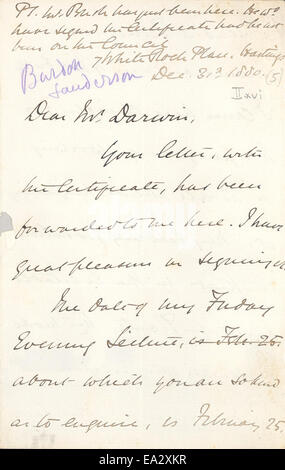 Pt. Mr. Busk has just been here. He wd.
have signed the Certificate had he not
been on the Council.
7 White Rock Place, Hastings
Dec. 31st 1880. (5)
Burdon
Sanderson
II xvi
Dear Mr. Darwin,
Your letter, with
the Certificate, has been
forwarded to me here. I have
great pleasure in signing it.
The date of my Friday
Evening Lecture, is Feb. 25.
about which you are so kind
as to enquire, is February 25.
alamy
EA2XKR
www.alamy.com